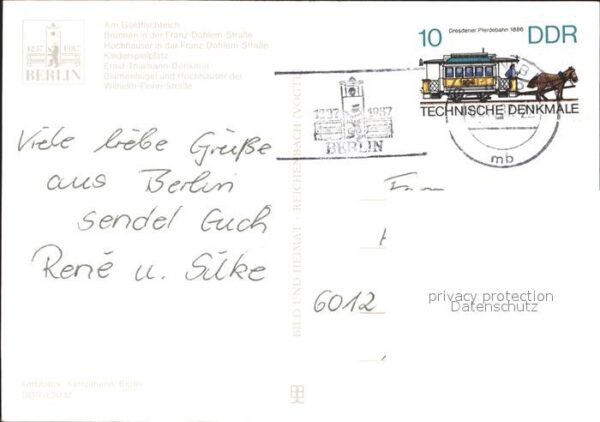 Am Goldfischteich
Brunnen in der Franz-Dahlem-Straße
Hochhäuser in der Franz-Dahlem-Straße
Kinderspielplatz
Ernst-Thälmann-Denkmal
Blumenhügel und Hochhäuser der
Wilhelm-Florin-Straße
1237 1987
BERLIN
Dresdener Pferdebahn 1886
10 DDR
TECHNISCHE DENKMALE
1237 1987
BERLIN
mb
Viele liebe Grüße
aus Berlin
sendet Euch
René u. Silke
BILD UND HEIMAT · REICHENBACH (VOGTL
6012
privacy protection
Datenschutz
Berlin